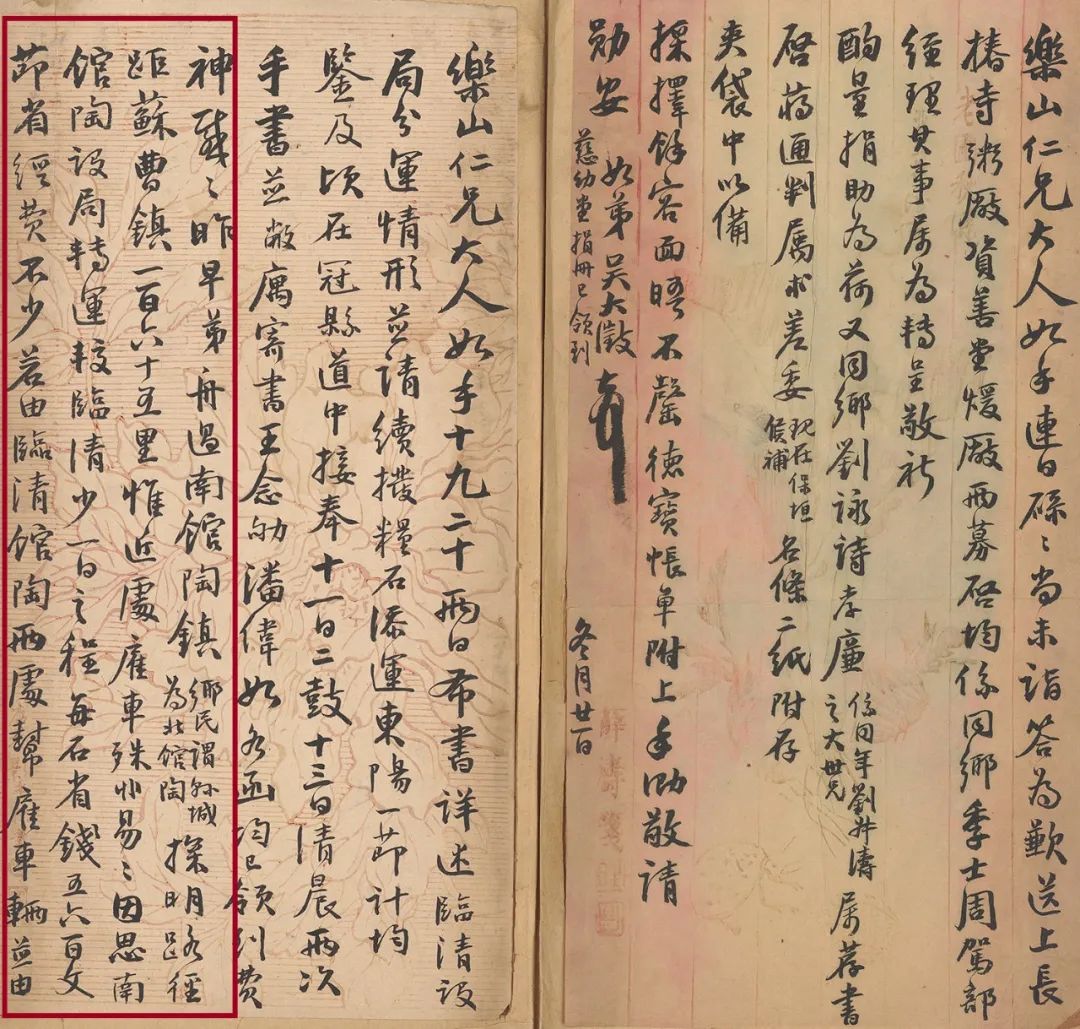 樂山仁兄大人如手連日碌〻尚未詣答為歉送上長
椿寺粥廠資善堂煖廠兩募啓均係同鄉季士周駕部
經理其事属為轉呈敬祈
酌量捐助為荷又同鄉劉詠詩孝廉係同年劉叔濤之大世兄属荐書
啓蔣通判属求差委現在保垣候補名條二紙附存
夾袋中以備
採擇餘容面晤不罄德寶帳單附上手泐敬請
勛安 如弟吳大澂
慈幼堂捐冊已領到
冬月廿一日
樂山仁兄大人如手十九二十兩日布書詳述臨清設
局分運情形並請續撥糧石添運東陽一節計均
鑒及頃在冠縣道中接奉十一日二鼓十三日清晨兩次
手書並敝寓寄書王念劬潘偉如各函均已領到費
神感〻昨早弟舟過南館陶鎮鄉民謂縣城為北館陶探明路徑
距蘇曹鎮一百六十五里惟近處雇車殊非易〻因思南
館陶設局轉運較臨清少一日之程每石省錢五六百文
節省經費不少若由臨清館陶兩處幫雇車輛並由